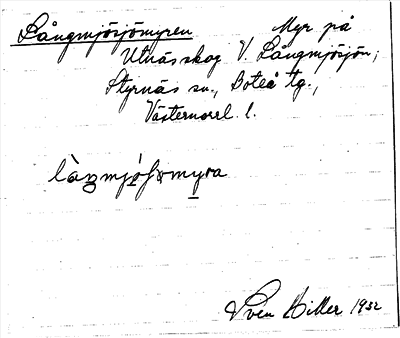 Långmjösjömyren Myr på
Utnäs skog V. Långmjösjön;
Styrnäs sn., Boteå tg.,
Västernorrl. l.
làŋmjóʃømyra
Sven Hiller 1932